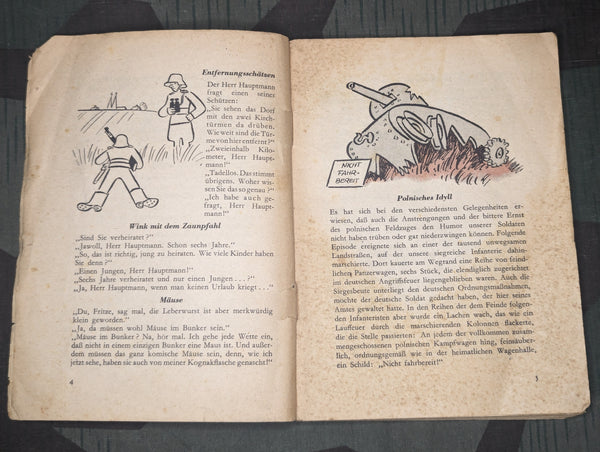 Entfernungsschätzen
Der Herr Hauptmann
fragt einen seiner
Schützen:
„Sie sehen das Dorf
mit den zwei Kirch-
türmen da drüben.
Wie weit sind die Tür-
me von hier entfernt?“
„Zweieinhalb Kilo-
meter, Herr Haupt-
mann!“
„Tadellos. Das stimmt
übrigens. Woher wis-
sen Sie das so genau?“
„Ich habe auch ge-
fragt, Herr Haupt-
mann!“
Wink mit dem Zaunpfahl
„Sind Sie verheiratet?“
„Jawoll, Herr Hauptmann. Schon sechs Jahre.“
„So, das ist richtig, jung zu heiraten. Wie viele Kinder haben
Sie denn?“
„Einen Jungen, Herr Hauptmann!“
„Sechs Jahre verheiratet und nur einen Jungen . . .?“
„Ja, Herr Hauptmann, wenn man keinen Urlaub kriegt . . .“
Mäuse
„Du, Fritze, sag mal, die Leberwurst ist aber merkwürdig
klein geworden.“
„Ja, da müssen wohl Mäuse im Bunker sein.“
„Mäuse im Bunker? Na, hör mal. Ich gehe jede Wette ein,
daß nicht in einem einzigen Bunker eine Maus ist. Und außer-
dem müssen das ganz komische Mäuse sein, denn, wie ich
jetzt sehe, haben sie auch von meiner Kognakflasche genascht!“
4
NICHT
FAHR-
BEREIT
Polnisches Idyll
Es hat sich bei den verschiedensten Gelegenheiten er-
wiesen, daß auch die Anstrengungen und der bittere Ernst
des polnischen Feldzuges den Humor unserer Soldaten
nicht haben trüben oder gar niederzwingen können. Folgende
Episode ereignete sich an einer der tausend unwegsamen
Landstraßen, auf der unsere siegreiche Infanterie dahin-
marschierte. Dort kauerte am Wegrand eine Reihe von feind-
lichen Panzerwagen, sechs Stück, die elendiglich zugerichtet
im deutschen Angriffsfeuer liegengeblieben waren. Auch die
Siegesbeute unterliegt den deutschen Ordnungsmaßnahmen,
mochte der deutsche Soldat gedacht haben, der hier seines
Amtes gewaltet hatte. In den Reihen der dem Feinde folgen-
den Infanteristen aber wurde ein Lachen wach, das wie ein
Lauffeuer durch die marschierenden Kolonnen flackerte,
die die Stelle passierten: An jedem der vollkommen zusam-
mengeschossenen polnischen Kampfwagen hing, feinsäuber-
lich, ordnungsgemäß wie in der heimatlichen Wagenhalle,
ein Schild: „Nicht fahrbereit!“
5